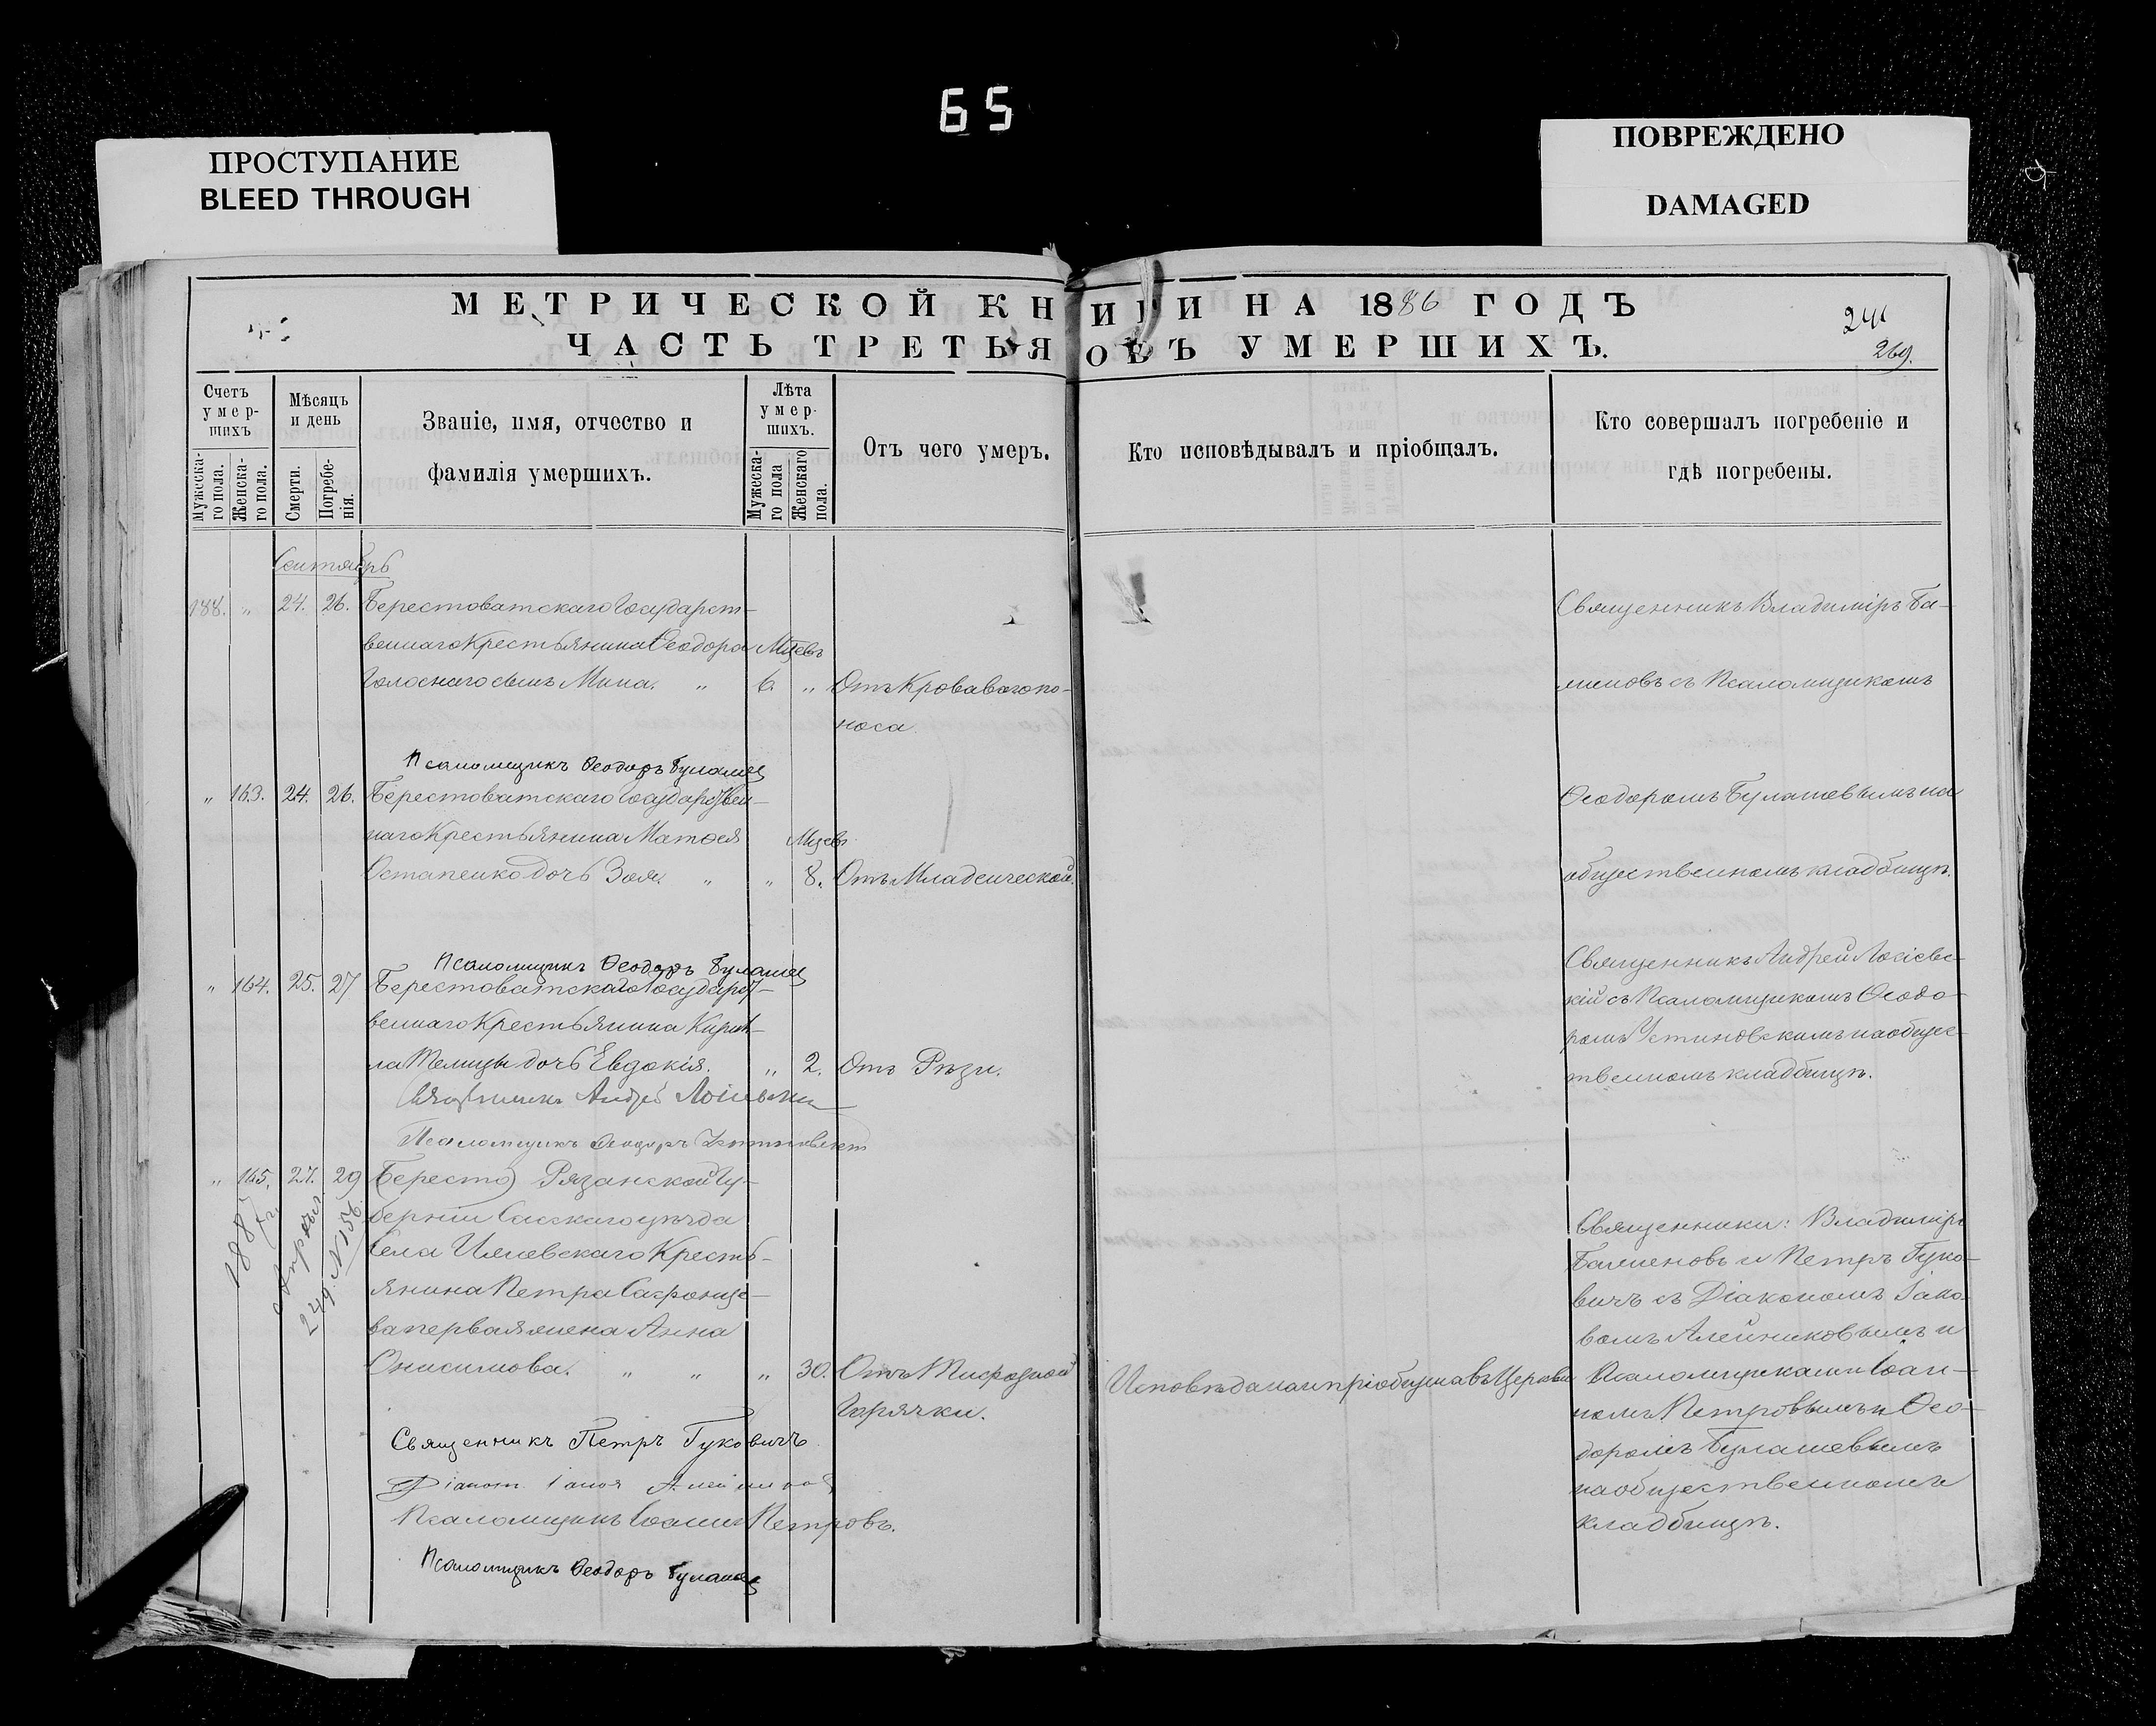 65
ПРОСТУПАНИЕ
BLEED THROUGH
ПОВРЕЖДЕНО
DAMAGED
МЕТРИЧЕСКОЙ КНИГИ НА 1886 ГОДЪ
ЧАСТЬ ТРЕТЬЯ ОБЪ УМЕРШИХЪ.
241
269.
Счетъ умер-шихъ
Мужеска-го пола.
Женска-го пола.
Мѣсяцъ и день
Смерти.
Погребе-нія.
Званіе, имя, отчество и
фамилія умершихъ.
Лѣта умер-шихъ.
Мужеска-го пола
Женскаго пола.
Отъ чего умеръ.
Кто исповѣдывалъ и пріобщалъ.
Кто совершалъ погребеніе и
гдѣ погребены.
Сентябрь
188. " 24. 26. Берестоватскаго Государст-
веннаго Крестьянина Ѳеодора Мцевъ
Голоснаго сынъ Мина. " 6. " Отъ Кроваваго по-
носа
Священникъ Владиміръ Ба-
меновъ съ Псаломщикомъ
Псаломщикъ Ѳеодоръ Булашев
" 163. 24. 26. Берестоватскаго Государствен-
наго Крестьянина Матѳея Мцевъ
Остапенко дочь Зоя. " " 8. Отъ Младенческой.
Ѳеодоромъ Булашевымъ на
общественномъ кладбищѣ.
Псаломщикъ Ѳеодоръ Булашев
" 164. 25. 27 Берестоватскаго Государст-
веннаго Крестьянина Кирил-
ла Телицы дочь Евдокія. " 2. Отъ Рѣзи.
Священникъ Андрей Лосіевс-
кій съ Псаломщикомъ Ѳеодо-
ромъ Устиновскимъ на общес-
твенномъ кладбищѣ.
Священникъ Андрей Лосіевскій
Псаломщикъ Ѳеодоръ Устиновскій
" 165. 27. 29 (Бересто) Рязанской Гу-
берніи уѣзда
Села Крестья-
янина Петра
ва первая жена Анна
Онисимова. " " " 30. Отъ Тифозной
Горячки.
Исповѣдана и пріобщена въ Церкви
Священники: Владиміръ
Баменовъ и Петръ Гуко-
вичъ съ Діакономъ Іако-
вомъ Алейниковымъ и
Псаломщиками Іоан-
номъ Петровымъ и Ѳео-
доромъ Булашевымъ
на общественномъ
кладбищѣ.
1887 г.
249. N 156.
Священникъ Петръ Гуковичъ
Діаконъ Іаковъ Алейников
Псаломщикъ Іоаннъ Петровъ.
Псаломщикъ Ѳеодоръ Булашев